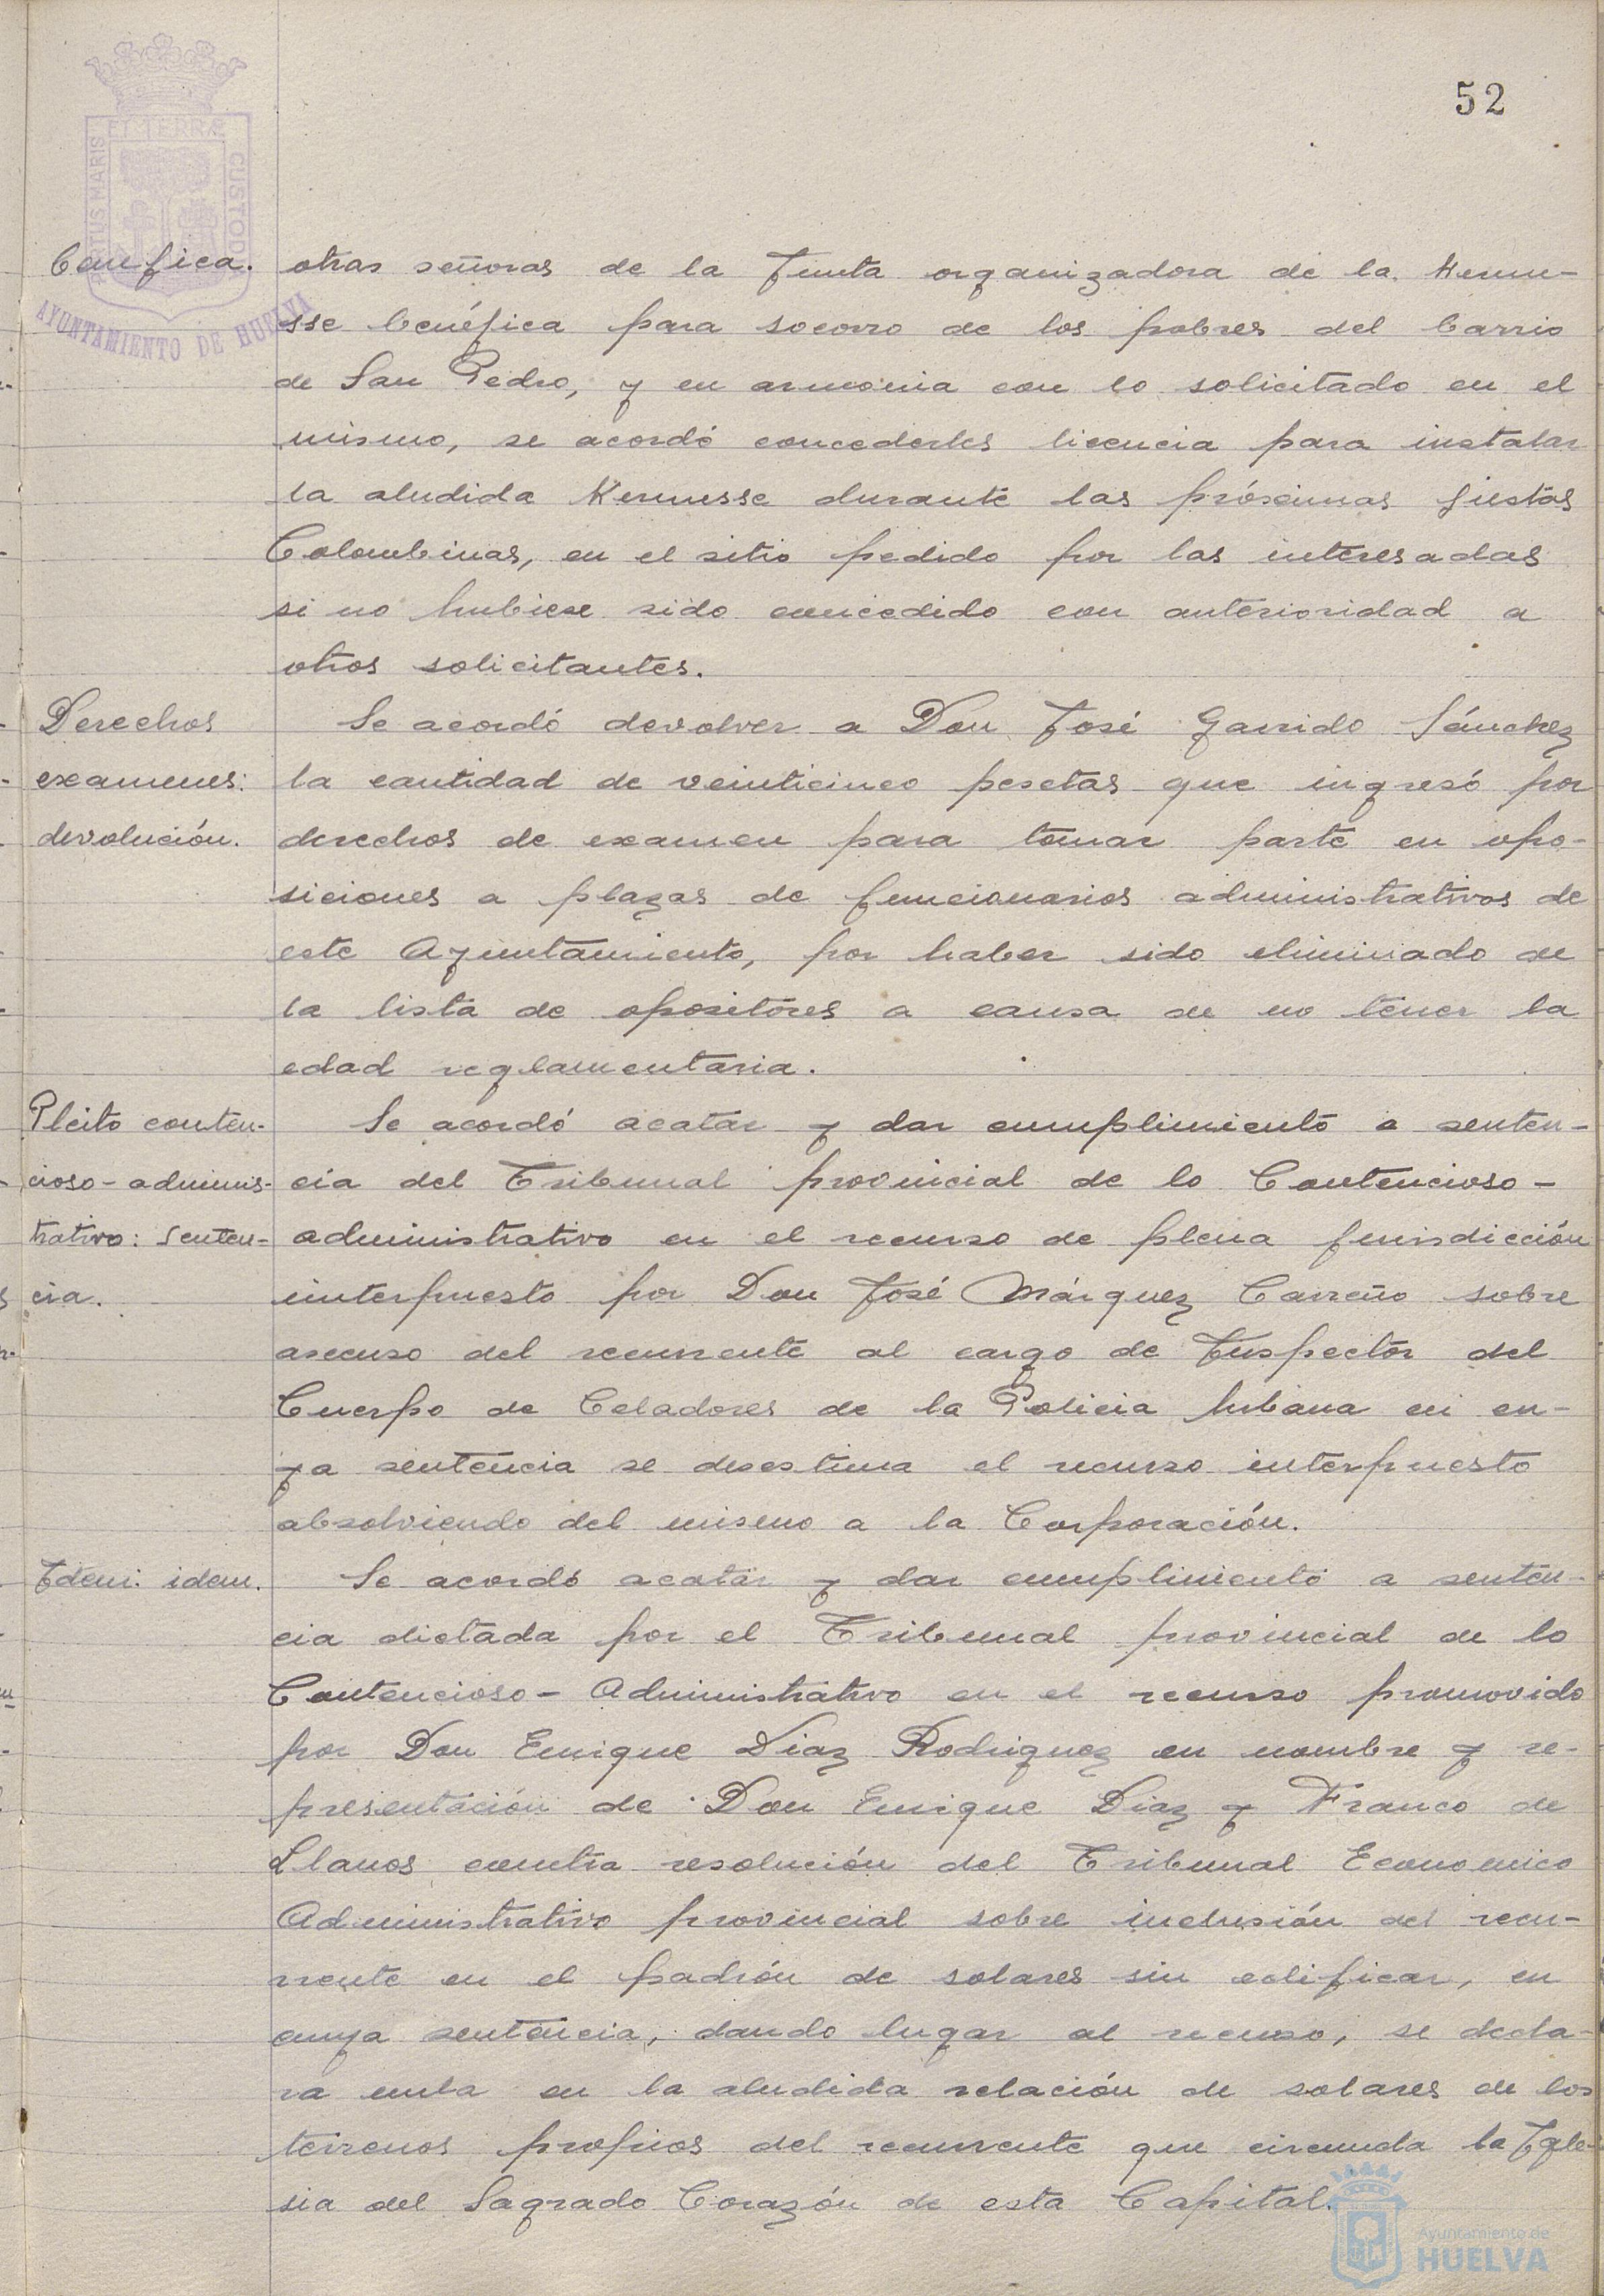 52
PORTUS MARIS ET TERRÆ CUSTODIA
AYUNTAMIENTO DE HUELVA
benefica.
otras señoras de la Junta organizadora de la Kerme-
sse benéfica para socorro de los pobres del barrio
de San Pedro, y en armonia con lo solicitado en el
mismo, se acordó concederles licencia para instalar
la aludida Kermesse durante las próximas fiestas
Colombinas, en el sitio pedido por las interesadas
si no hubiese sido concedido con anterioridad a
otros solicitantes.
Derechos
examenes:
devolución.
Se acordó devolver a Don José Garrido Sánchez
la cantidad de veinticinco pesetas que ingresó por
derechos de examen para tomar parte en opo-
siciones a plazas de funcionarios administrativos de
este Ayuntamiento, por haber sido eliminado de
la lista de opositores a causa de no tener la
edad reglamentaria.
Pleito conten-
cioso-adminis-
trativo: senten-
cia.
Se acordó acatar y dar cumplimiento a senten-
cia del Tribunal provincial de lo Contencioso-
administrativo en el recurso de plena jurisdicción
interpuesto por Don José Márquez Carreño sobre
ascenso del recurrente al cargo de Inspector del
Cuerpo de Celadores de la Policia Urbana en cu-
ya sentencia se desestima el recurso interpuesto
absolviendo del mismo a la Corporación.
Idem: idem.
Se acordó acatar y dar cumplimiento a senten-
cia dictada por el Tribunal provincial de lo
Contencioso-Administrativo en el recurso promovido
por Don Enrique Diaz Rodriguez en nombre y re-
presentación de Don Enrique Diaz y Franco de
Llanos contra resolución del Tribunal Economico
Administrativo provincial sobre inclusión del recu-
rrente en el padrón de solares sin edificar, en
cuya sentencia, dando lugar al recurso, se decla-
ra nula en la aludida relación de solares de los
terrenos propios del recurrente que circunda la Igle-
sia del Sagrado Corazón de esta Capital.
Ayuntamiento de
HUELVA